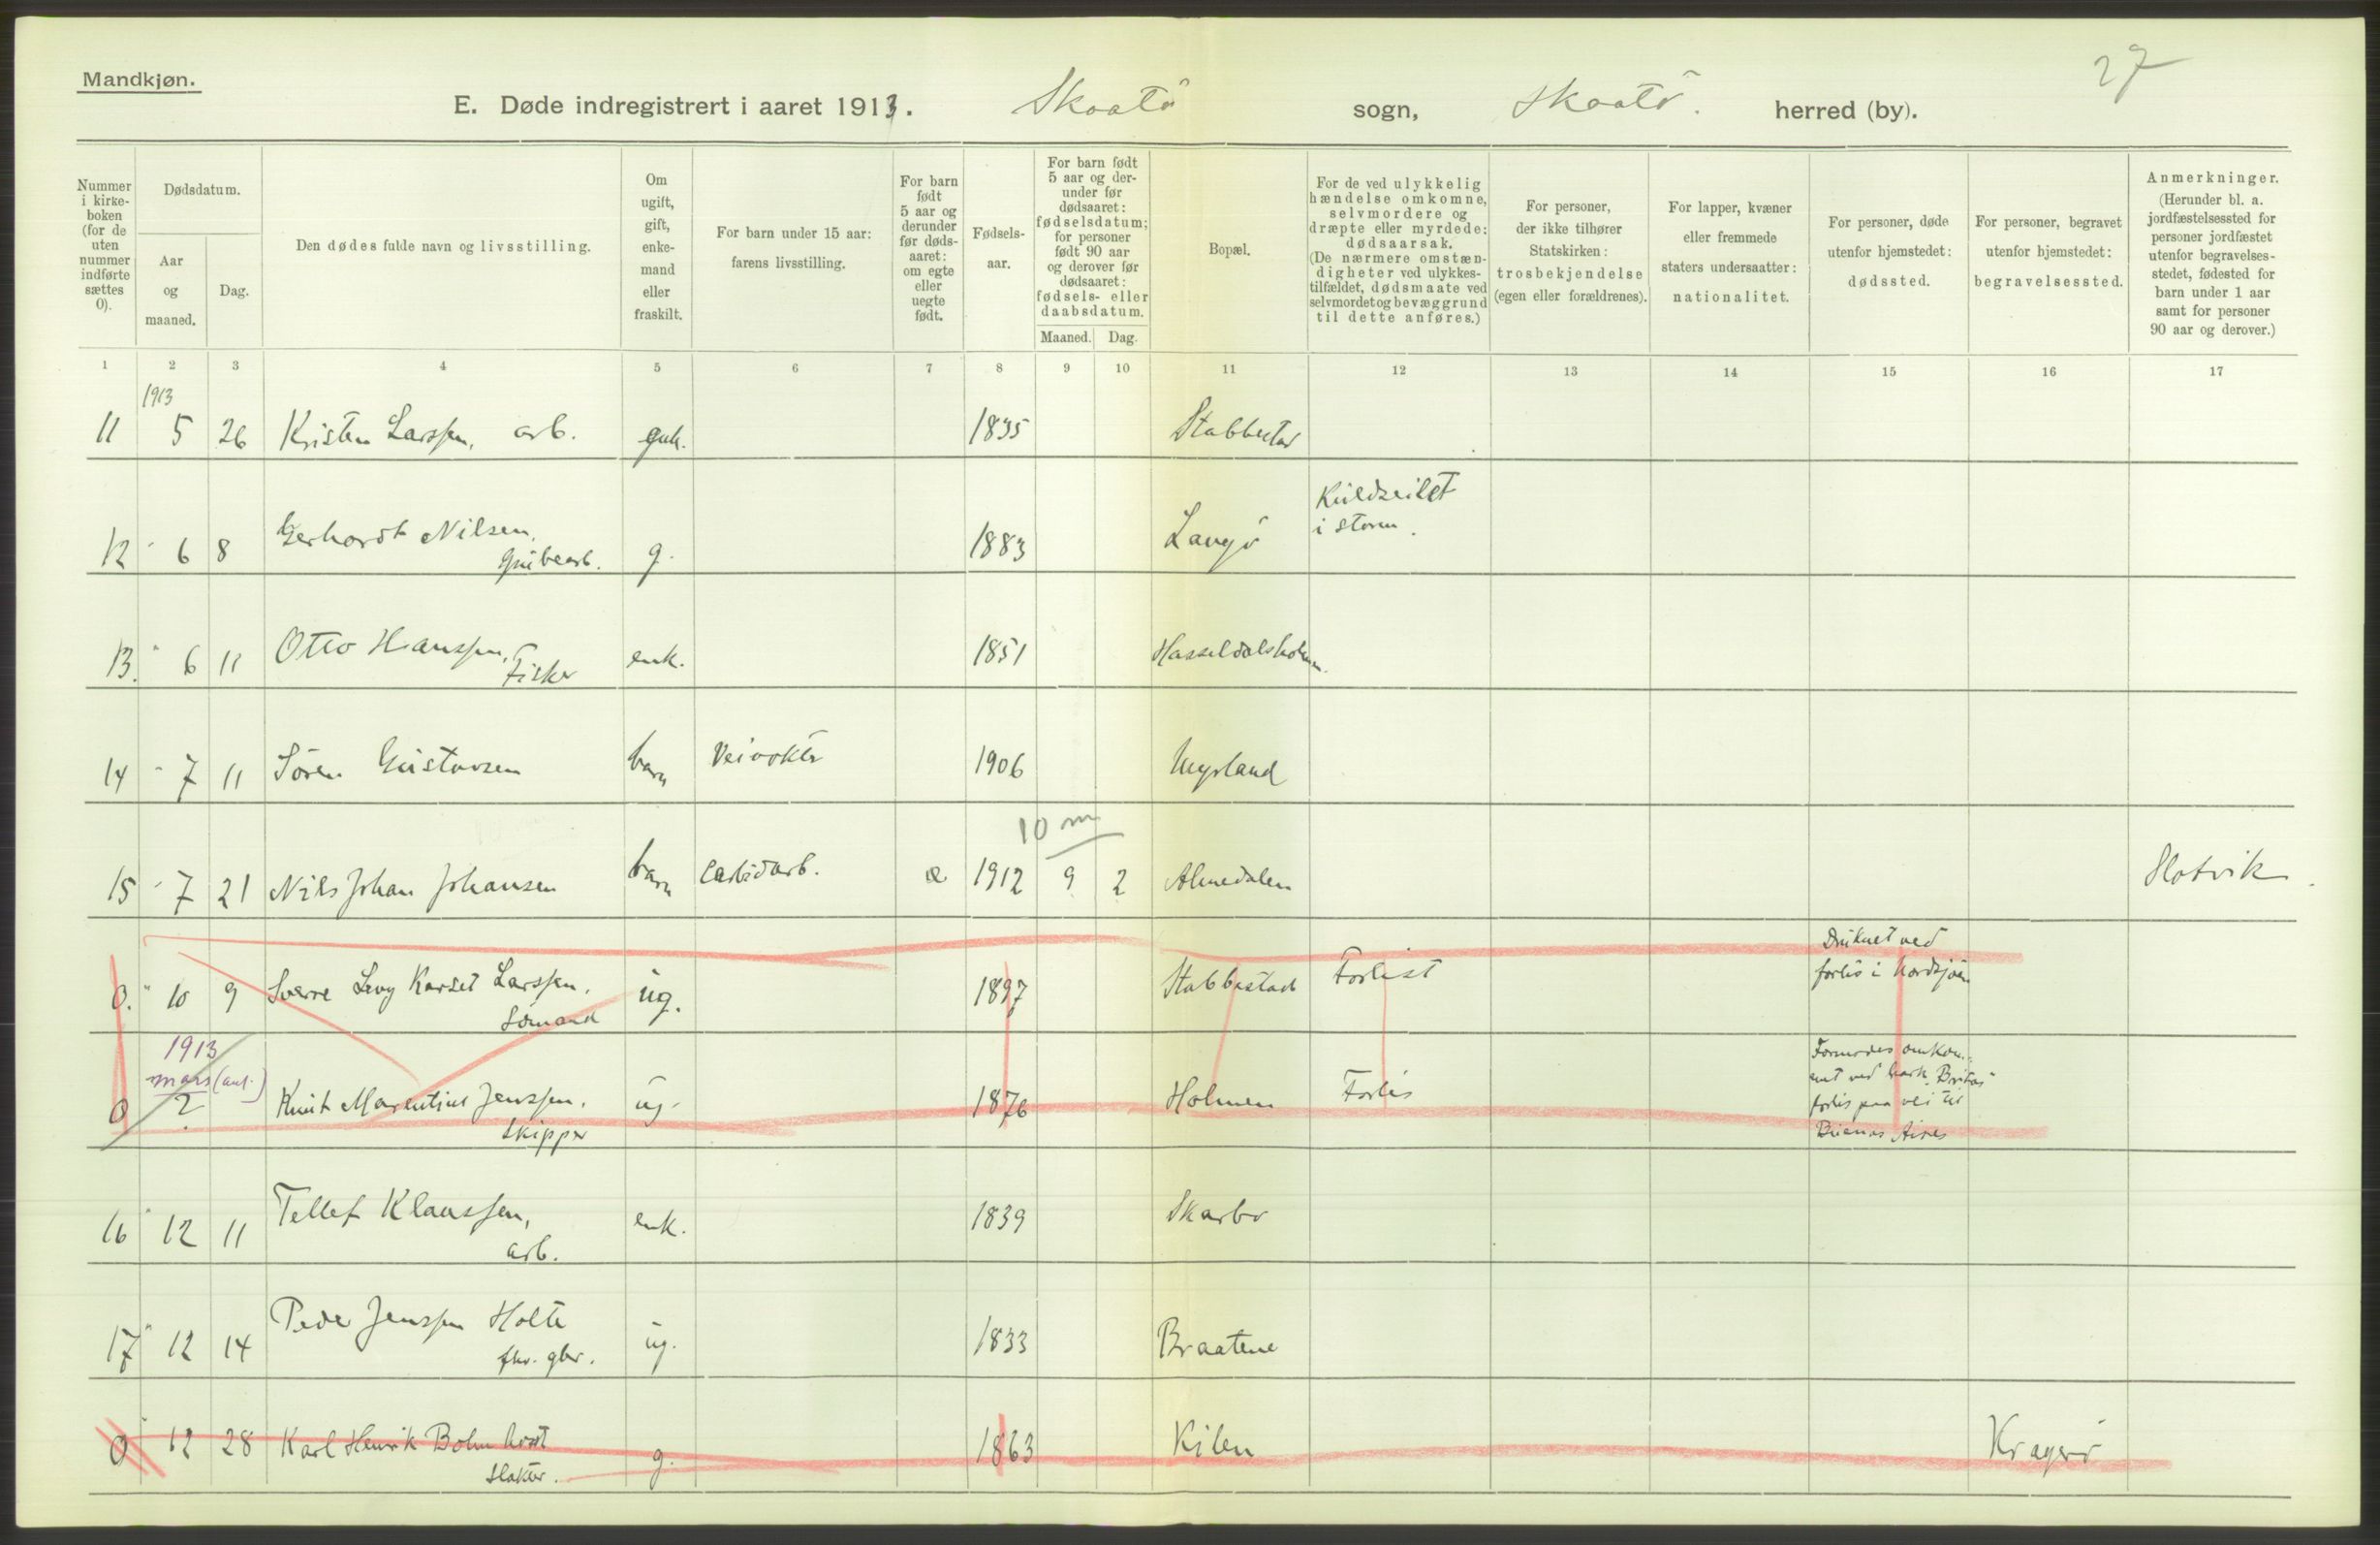 Mandkjøn.
27
E. Døde indregistrert i aaret 1913. Skaatö sogn, Skaatö. herred (by).
Nummer i kirke-boken (for de uten nummer indførte sættes 0).
Dødsdatum.
Aar og maaned.
Dag.
Den dødes fulde navn og livsstilling.
Om ugift, gift, enke-mand eller fraskilt.
For barn under 15 aar: farens livsstilling.
For barn født 5 aar og derunder før døds-aaret: om egte eller uegte født.
Fødsels-aar.
For barn født 5 aar og der-under før dødsaaret: fødselsdatum; for personer født 90 aar og derover før dødsaaret: fødsels- eller daabsdatum.
Maaned. Dag.
Bopæl.
For de ved ulykkelig hændelse omkomne, selvmordere og dræpte eller myrdede: dødsaarsak. (De nærmere omstæn-digheter ved ulykkes-tilfældet, dødsmaate ved selvmordet og bevæggrund til dette anføres.)
For personer, der ikke tilhører Statskirken: trosbekjendelse (egen eller forældrenes).
For lapper, kvæner eller fremmede staters undersaatter: nationalitet.
For personer, døde utenfor hjemstedet: dødssted.
For personer, begravet utenfor hjemstedet: begravelsessted.
Anmerkninger. (Herunder bl. a. jordfæstelsessted for personer jordfæstet utenfor begravelses-stedet, fødested for barn under 1 aar samt for personer 90 aar og derover.)
1 2 3 4 5 6 7 8 9 10 11 12 13 14 15 16 17
1913
11 5 26 Kristen Larssen, arb. 1835 Stabbestad
Kuldseilet
i storm.
12 " 6 8 Gerhardt Nilsen, g. 1883 Langö
Grubearb.
13. " 6 11 Otto Hanssen, enk. 1851 Hasseldalsholmen.
Fisker
14 " 7 11 Sören Gustavsen barn Veivokter 1906 Myrland
10 m
15 " 7 21 Nils Johan Johansen barn Carbidarb. e 1912 9 2 Almedalen Slotvik.
Druknet ved
forlis i Nordsjöen
0. " 10 9 Sverre Levy Larssen, ug. 1897 Stabbestad Forlist
Sömand
1913
mars (ant.)
Formodes omkom-
met ved bark "Britas"
forlis paa vei til
Buenos Aires
0 ? Knut Marentius Jenssen, ug. 1876 Holmen Forlis
Skipper
16 " 12 11 Tellef Klaussen, enk. 1839 Skarbo
arb.
17 " 12 14 Peder Jenssen Holte ug. 1833 Braatene
fhv. gbr.
0 " 12 28 Karl Henrik g. 1863 Kilen Kragerö
Slakter.